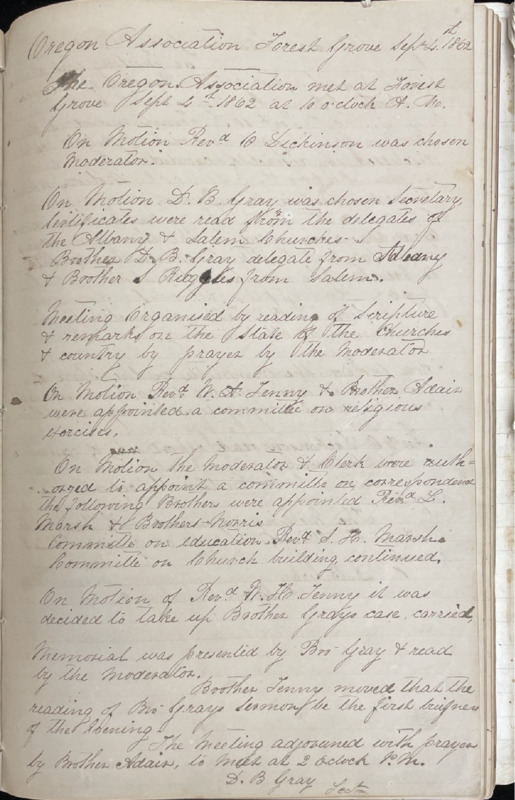 Oregon Association Forest Grove Sept 4th 1862
The Oregon Association met at Forest
Grove Sept 4th 1862 at 10 o'clock A. M.
On Motion Revd O Dickinson was chosen
Moderator.
On Motion D. B Gray was chosen Secretary
Certificates were read from the delegates of
the Albany & Salem Churches
Brother D. B. Gray delegate from Albany
& Boother S Ruggles from Salem.
Meeting Organised by reading of Scripture
& remarks on the State of the Churches
& country by prayer by the Moderator
On Motion Revd W. A. Tenny & Brother Adair
were appointed a committe on religious
exercises.
On Motion the Moderator & Clerk were auth=
orred to appoint a committe on correspondence
the following Brothers were appointed Revd L.
Marsh & Brothers Morris
Committe on education Revd S. H. Marsh
Committe on Church building continued.
On Motion of Revd W. A. Tenny it was
decided to take up Brother Grays case carried,
Memorial was presented by Bro Gray & read
by the Moderator.
Boother Tenny moved that the
reading of Bro Grays Sermon be the first buisness
of the Evening
The Meeting adjourned with prayer
by Brother Adair, to meet at 2 oclock P.M.
D. B Gray
Sect